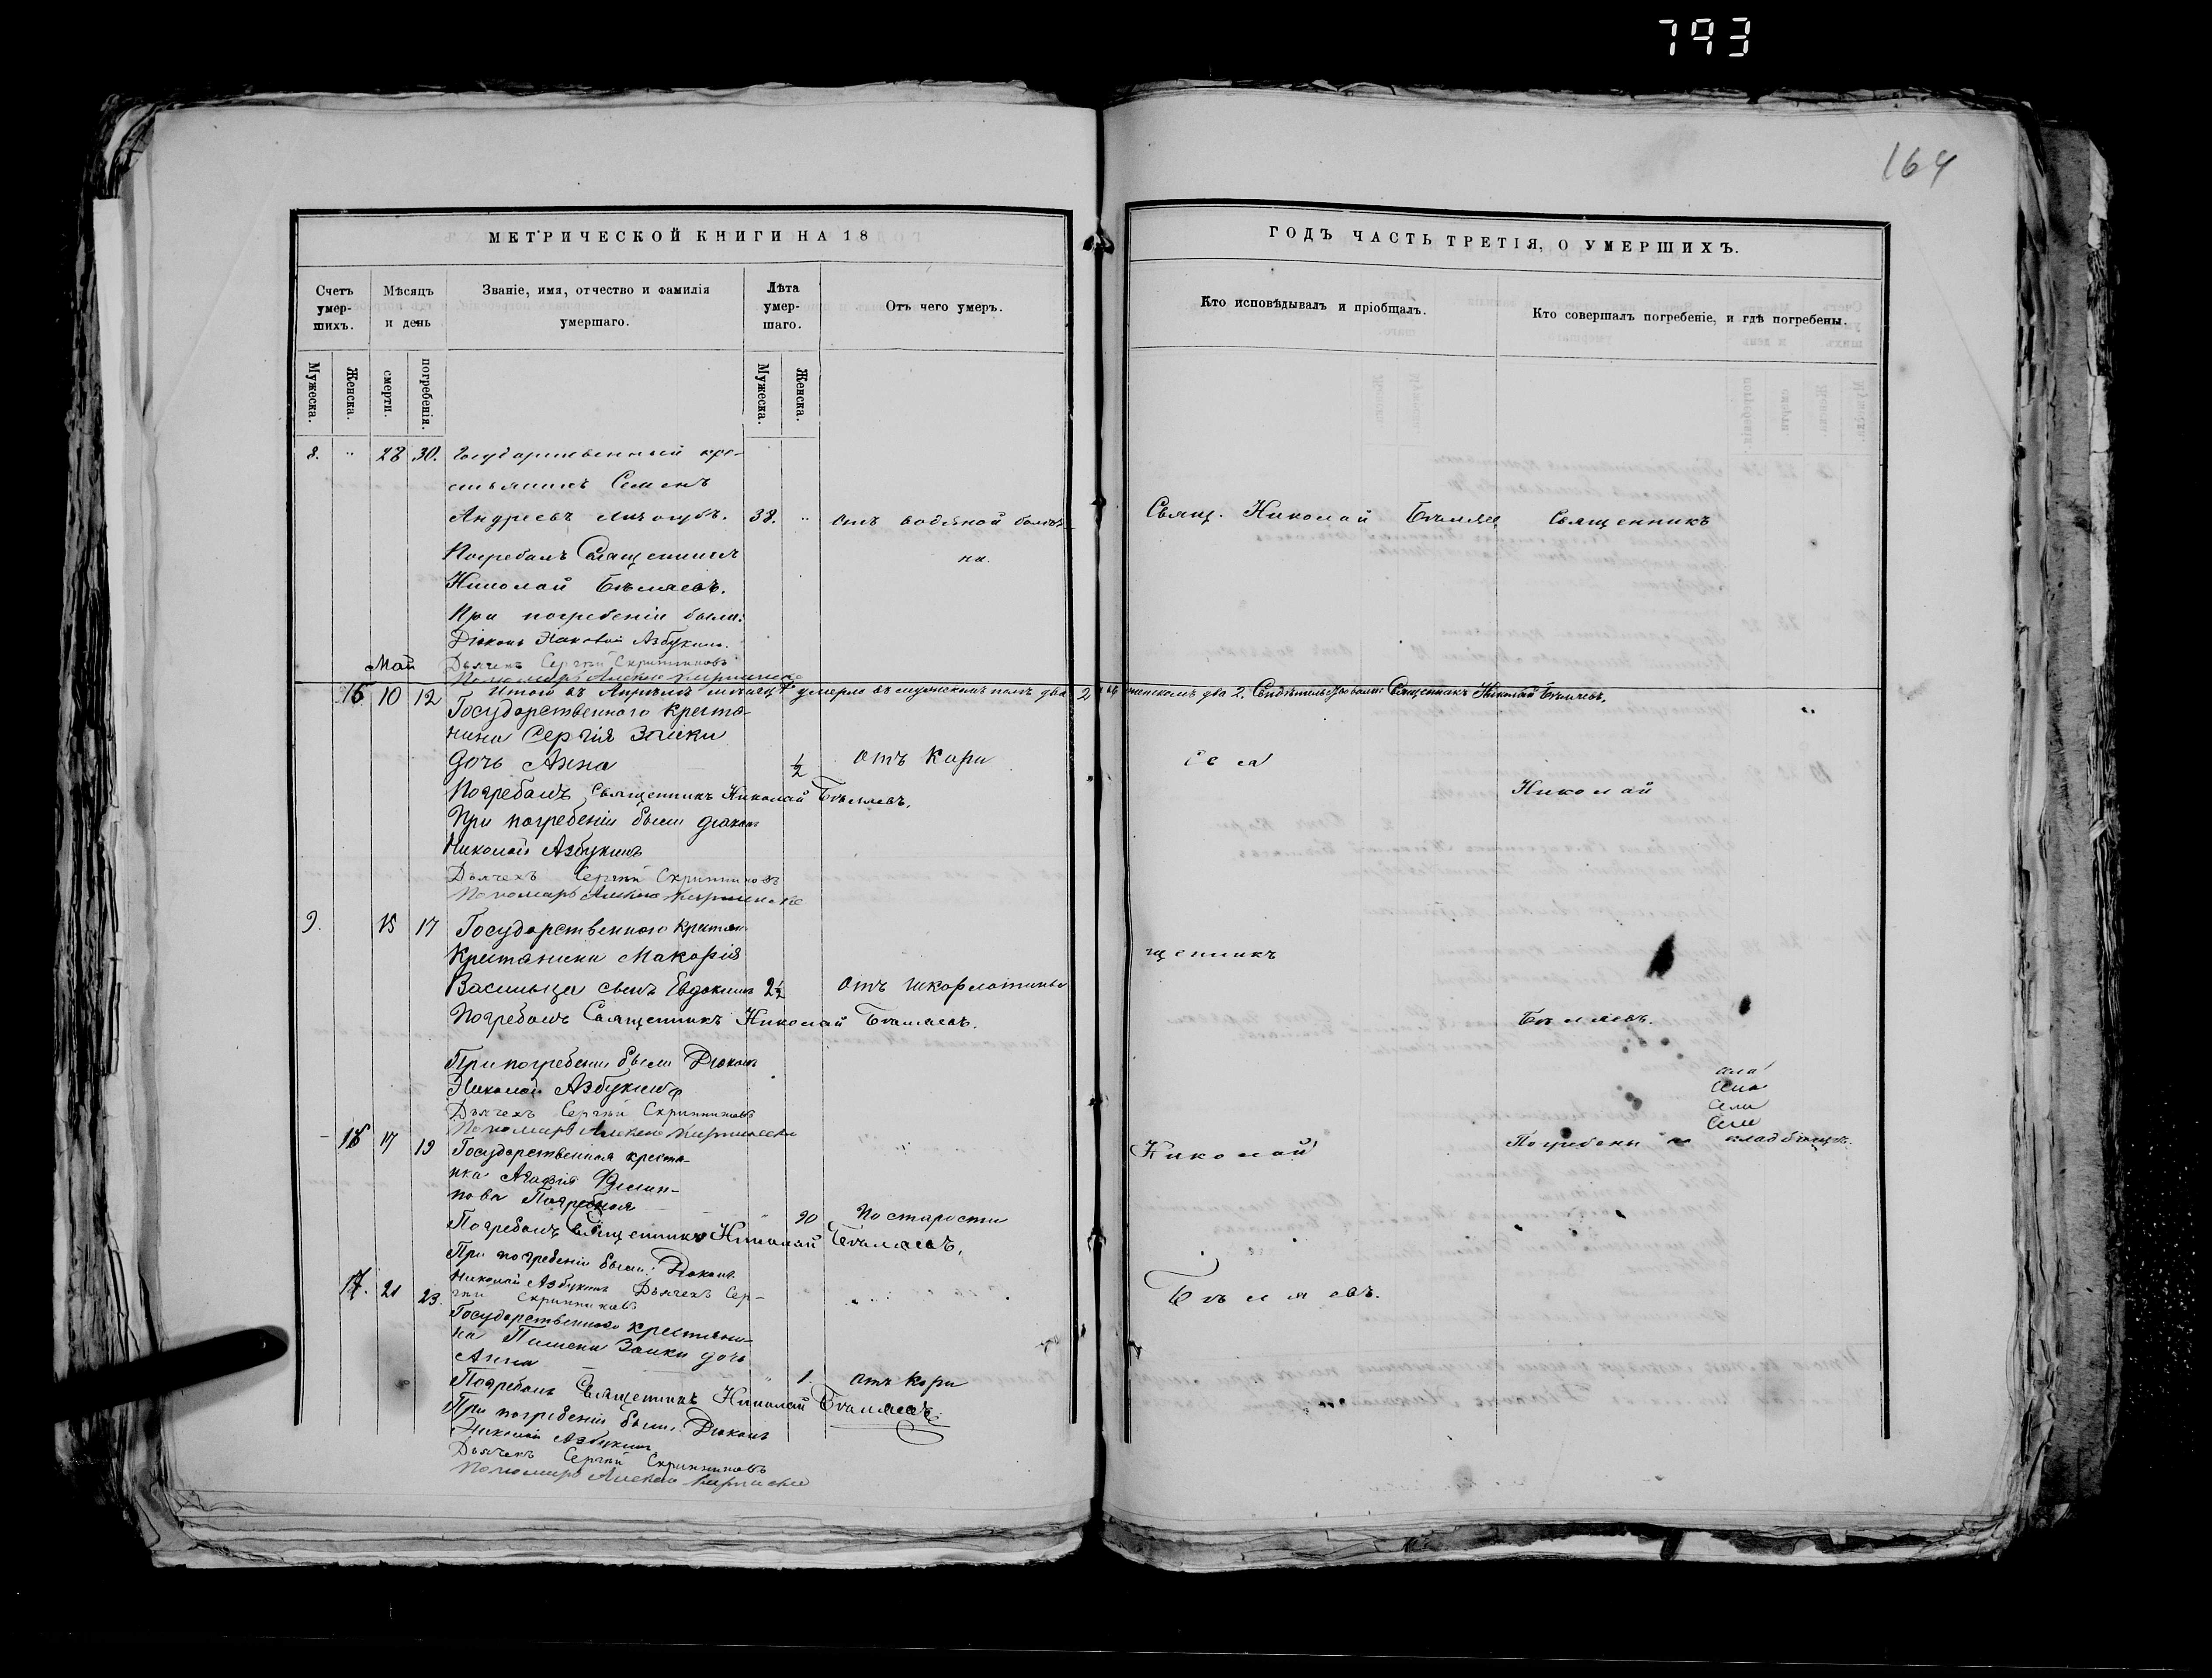 793
164
МЕТРИЧЕСКОЙ КНИГИ НА 18
ГОДЪ ЧАСТЬ ТРЕТІЯ, О УМЕРШИХЪ.
Счетъ умер-шихъ.
Мѣсяцъ и день
Званіе, имя, отчество и фамилія умершаго.
Лѣта умер-шаго.
Отъ чего умеръ.
Кто исповѣдывалъ и пріобщалъ.
Кто совершалъ погребеніе, и гдѣ погребены.
Мужеска.
Женска.
смерти.
погребенія.
Мужеска.
Женска.
8. " 28 30. Государственный кре-
стьянинъ Семенъ
Андреевъ 38. " отъ водяной болѣз-
на.
Свящ. Николай Бѣляев Священникъ
Погребалъ Священникъ
Николай Бѣляевъ.
При погребеніи были:
Діаконъ Азбукинъ.
Май Дьячекъ Сергѣй Скрипниковъ
Пономарь Алексѣй
Итого въ Апрѣлѣ мѣсяцѣ умерло въ мужескомъ полѣ два 2 женскомъ два 2. Свидѣтельствовали: Священникъ Николай Бѣляевъ.
15 10 12 Государственного крестя-
нина Сергія Заики
дочь Анна ½ отъ Кори
Погребалъ Священникъ Николай Бѣляевъ.
Николай
При погребеніи были діаконъ
Николай Азбукинъ
Дьячекъ Сергѣй Скрипниковъ
Пономарь Алексѣй
9. 15 17 Государственного Крестян
Крестянина Макарія
щенникъ
Василь сынъ Евдокимъ 2½ отъ шкорлотины
Погребалъ Священникъ Николай Бѣляевъ.
Бѣляевъ.
При погребеніи были Діаконъ
Николай Азбукинъ
Дьячекъ Сергѣй Скрипниковъ
Пономарь Алексѣй
16 17 19 Государственная крестя-
Николай
Погребены на кладбищѣ.
нка Агафія Филип-
пова
90 По старости
Погребалъ Священникъ Николай Бѣляевъ.
При погребеніи были: Діаконъ
Николай Азбукинъ Дьячекъ Сер-
гѣй Скрипниковъ
17. 21 23. Государственного крестяни-
Бѣляевъ.
на Пимена Заики дочь
Анна " 1. отъ Кори
Погребалъ Священникъ Николай Бѣляевъ.
При погребеніи были: Діаконъ
Николай Азбукинъ
Дьячекъ Сергѣй Скрипниковъ
Пономарь Алексѣй